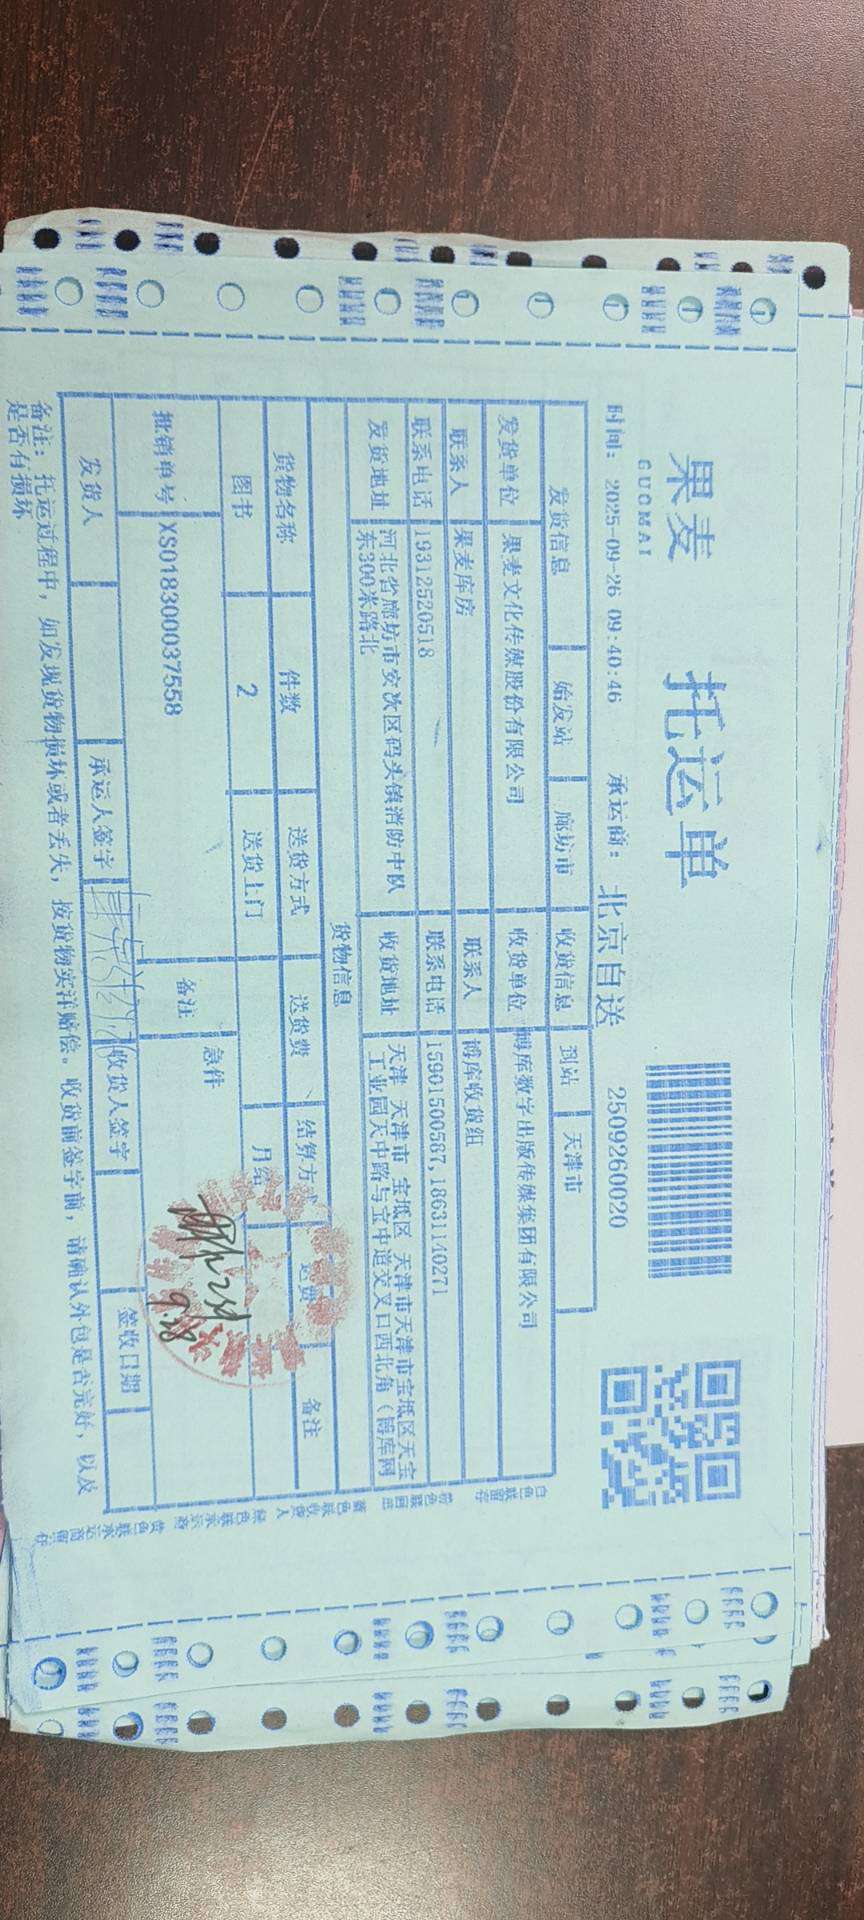 果麦
GUOMAI
托运单
2509260020
时间: 2025-09-26 09:40:46 承运商: 北京自送
发货信息 始发站 廊坊市 收货信息 到站 天津市
发货单位 果麦文化传媒股份有限公司 收货单位 博库数字出版传媒集团有限公司
联系人 果麦库房 联系人 博库收货组
联系电话 19312520518 联系电话 15901500587,18631140271
发货地址 河北省廊坊市安次区码头镇消防中队 收货地址 天津 天津市 宝坻区 天津市天津市宝坻区天宝
东300米路北 工业园天中路与宝中道交叉口西北角（博库网
货物信息
货物名称 件数 送货方式 送货费 结算方式 运费 备注
图书 2 送货上门 月结
批销单号 XS018300037558 备注 急件
发货人 承运人签字 收货人签字 签收日期
备注: 托运过程中, 如发现货物损坏或者丢失, 按货物实洋赔偿。收货前签字前, 请确认外包是否完好, 以及
是否有损坏
白色联留存
黄色联承运商留存